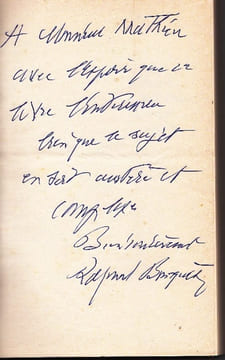 A Monsieur Mathieu
avec l'espoir que ce
livre l'intéressera
bien que le sujet
en soit austère et
complexe
Bien sincèrement